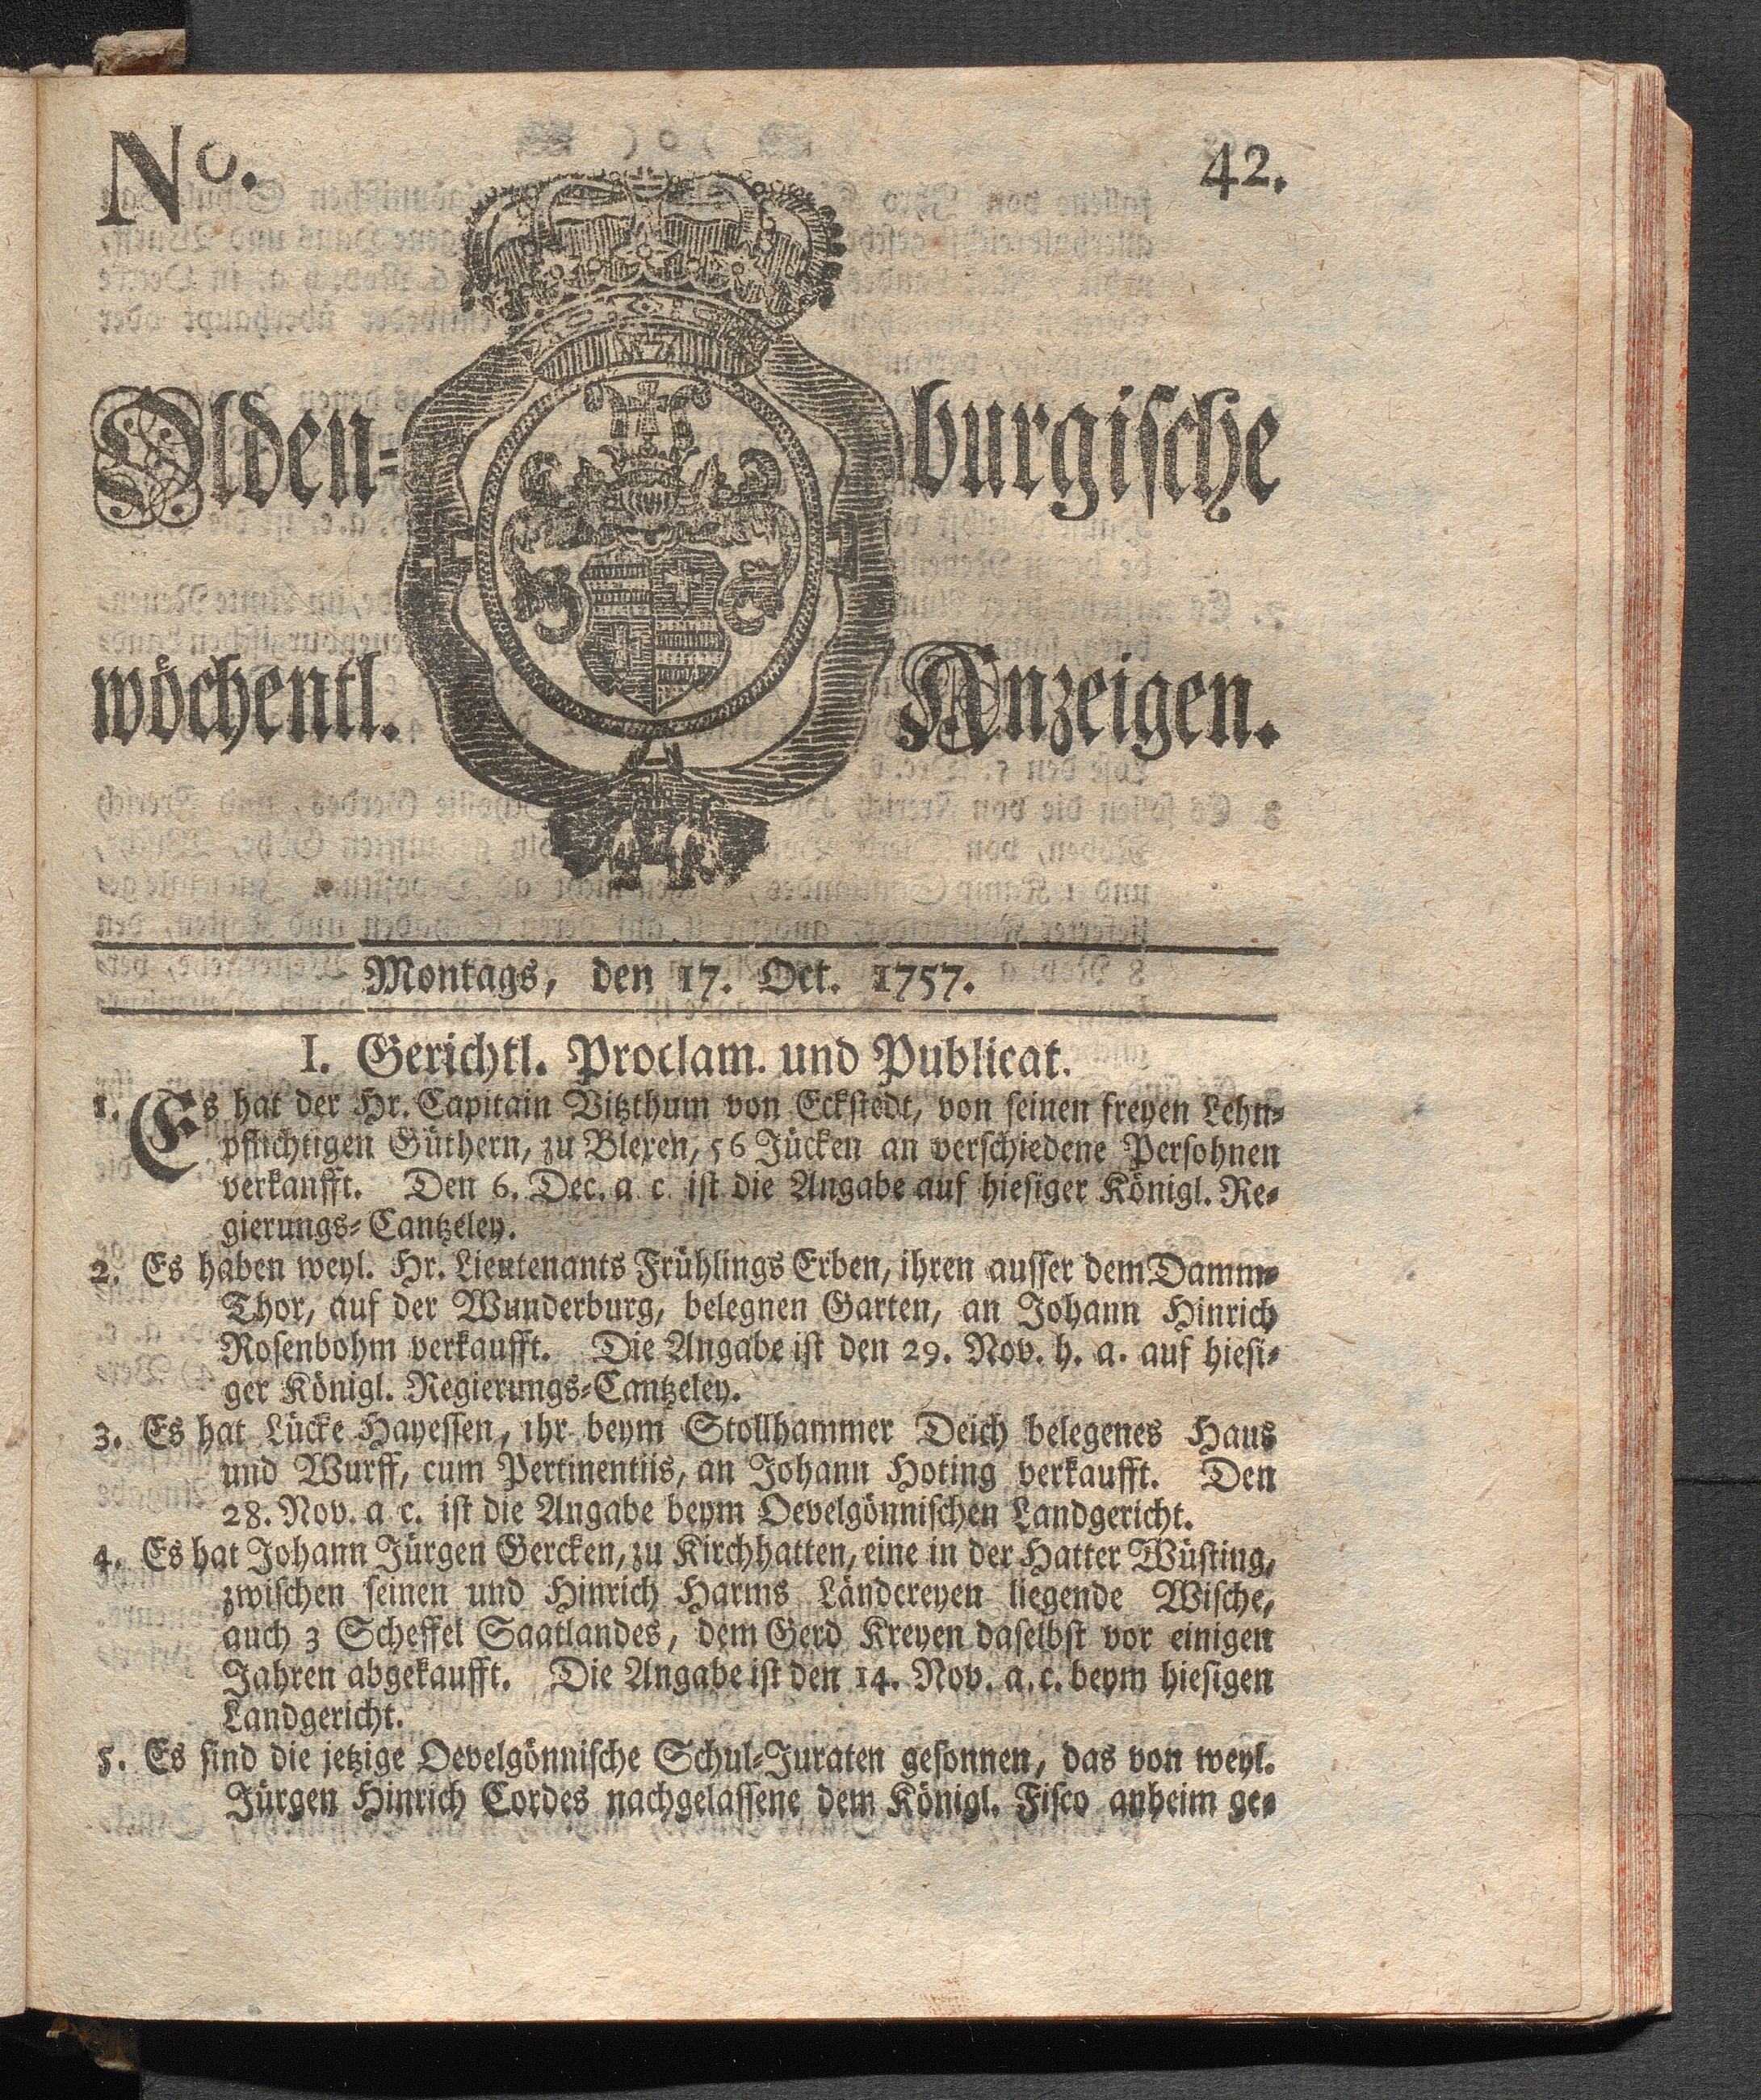 No. 42.
Olden- burgische
wöchentl. Anzeigen.
Montags, den 17. Oct. 1757.
I. Gerichtl. Proclam. und Publicat.
1. Es hat der Hr. Capitain Vitzthum von Eckstedt, von seinen freyen Lehn-
pflichtigen Güthern, zu Blexen, 56 Jücken an verschiedene Persohnen
verkaufft. Den 6. Dec. a c. ist die Angabe auf hiesiger Königl. Re-
gierungs-Cantzeley.
2. Es haben weyl. Hr. Lieutenants Frühlings Erben, ihren ausser dem Damm-
Thor, auf der Wunderburg, belegnen Garten, an Johann Hinrich
Rosenbohm verkaufft. Die Angabe ist den 29. Nov. h. a. auf hiesi-
ger Königl. Regierungs-Cantzeley.
3. Es hat Lücke Hayessen, ihr beym Stollhammer Deich belegenes Haus
und Wurff, cum Pertinentiis, an Johann Hoting verkaufft. Den
28. Nov. a c. ist die Angabe beym Oevelgönnischen Landgericht.
4. Es hat Johann Jürgen Gercken, zu Kirchhatten, eine in der Hatter Wüsting,
zwischen seinen und Hinrich Harms Ländereyen liegende Wische,
auch 3 Scheffel Saatlandes, dem Gerd Kreyen daselbst vor einigen
Jahren abgekaufft. Die Angabe ist den 14. Nov. a. c. beym hiesigen
Landgericht.
5. Es sind die jetzige Oevelgönnische Schul-Juraten gesonnen, das von weyl.
Jürgen Hinrich Cordes nachgelassene dem Königl. Fisco anheim ge-